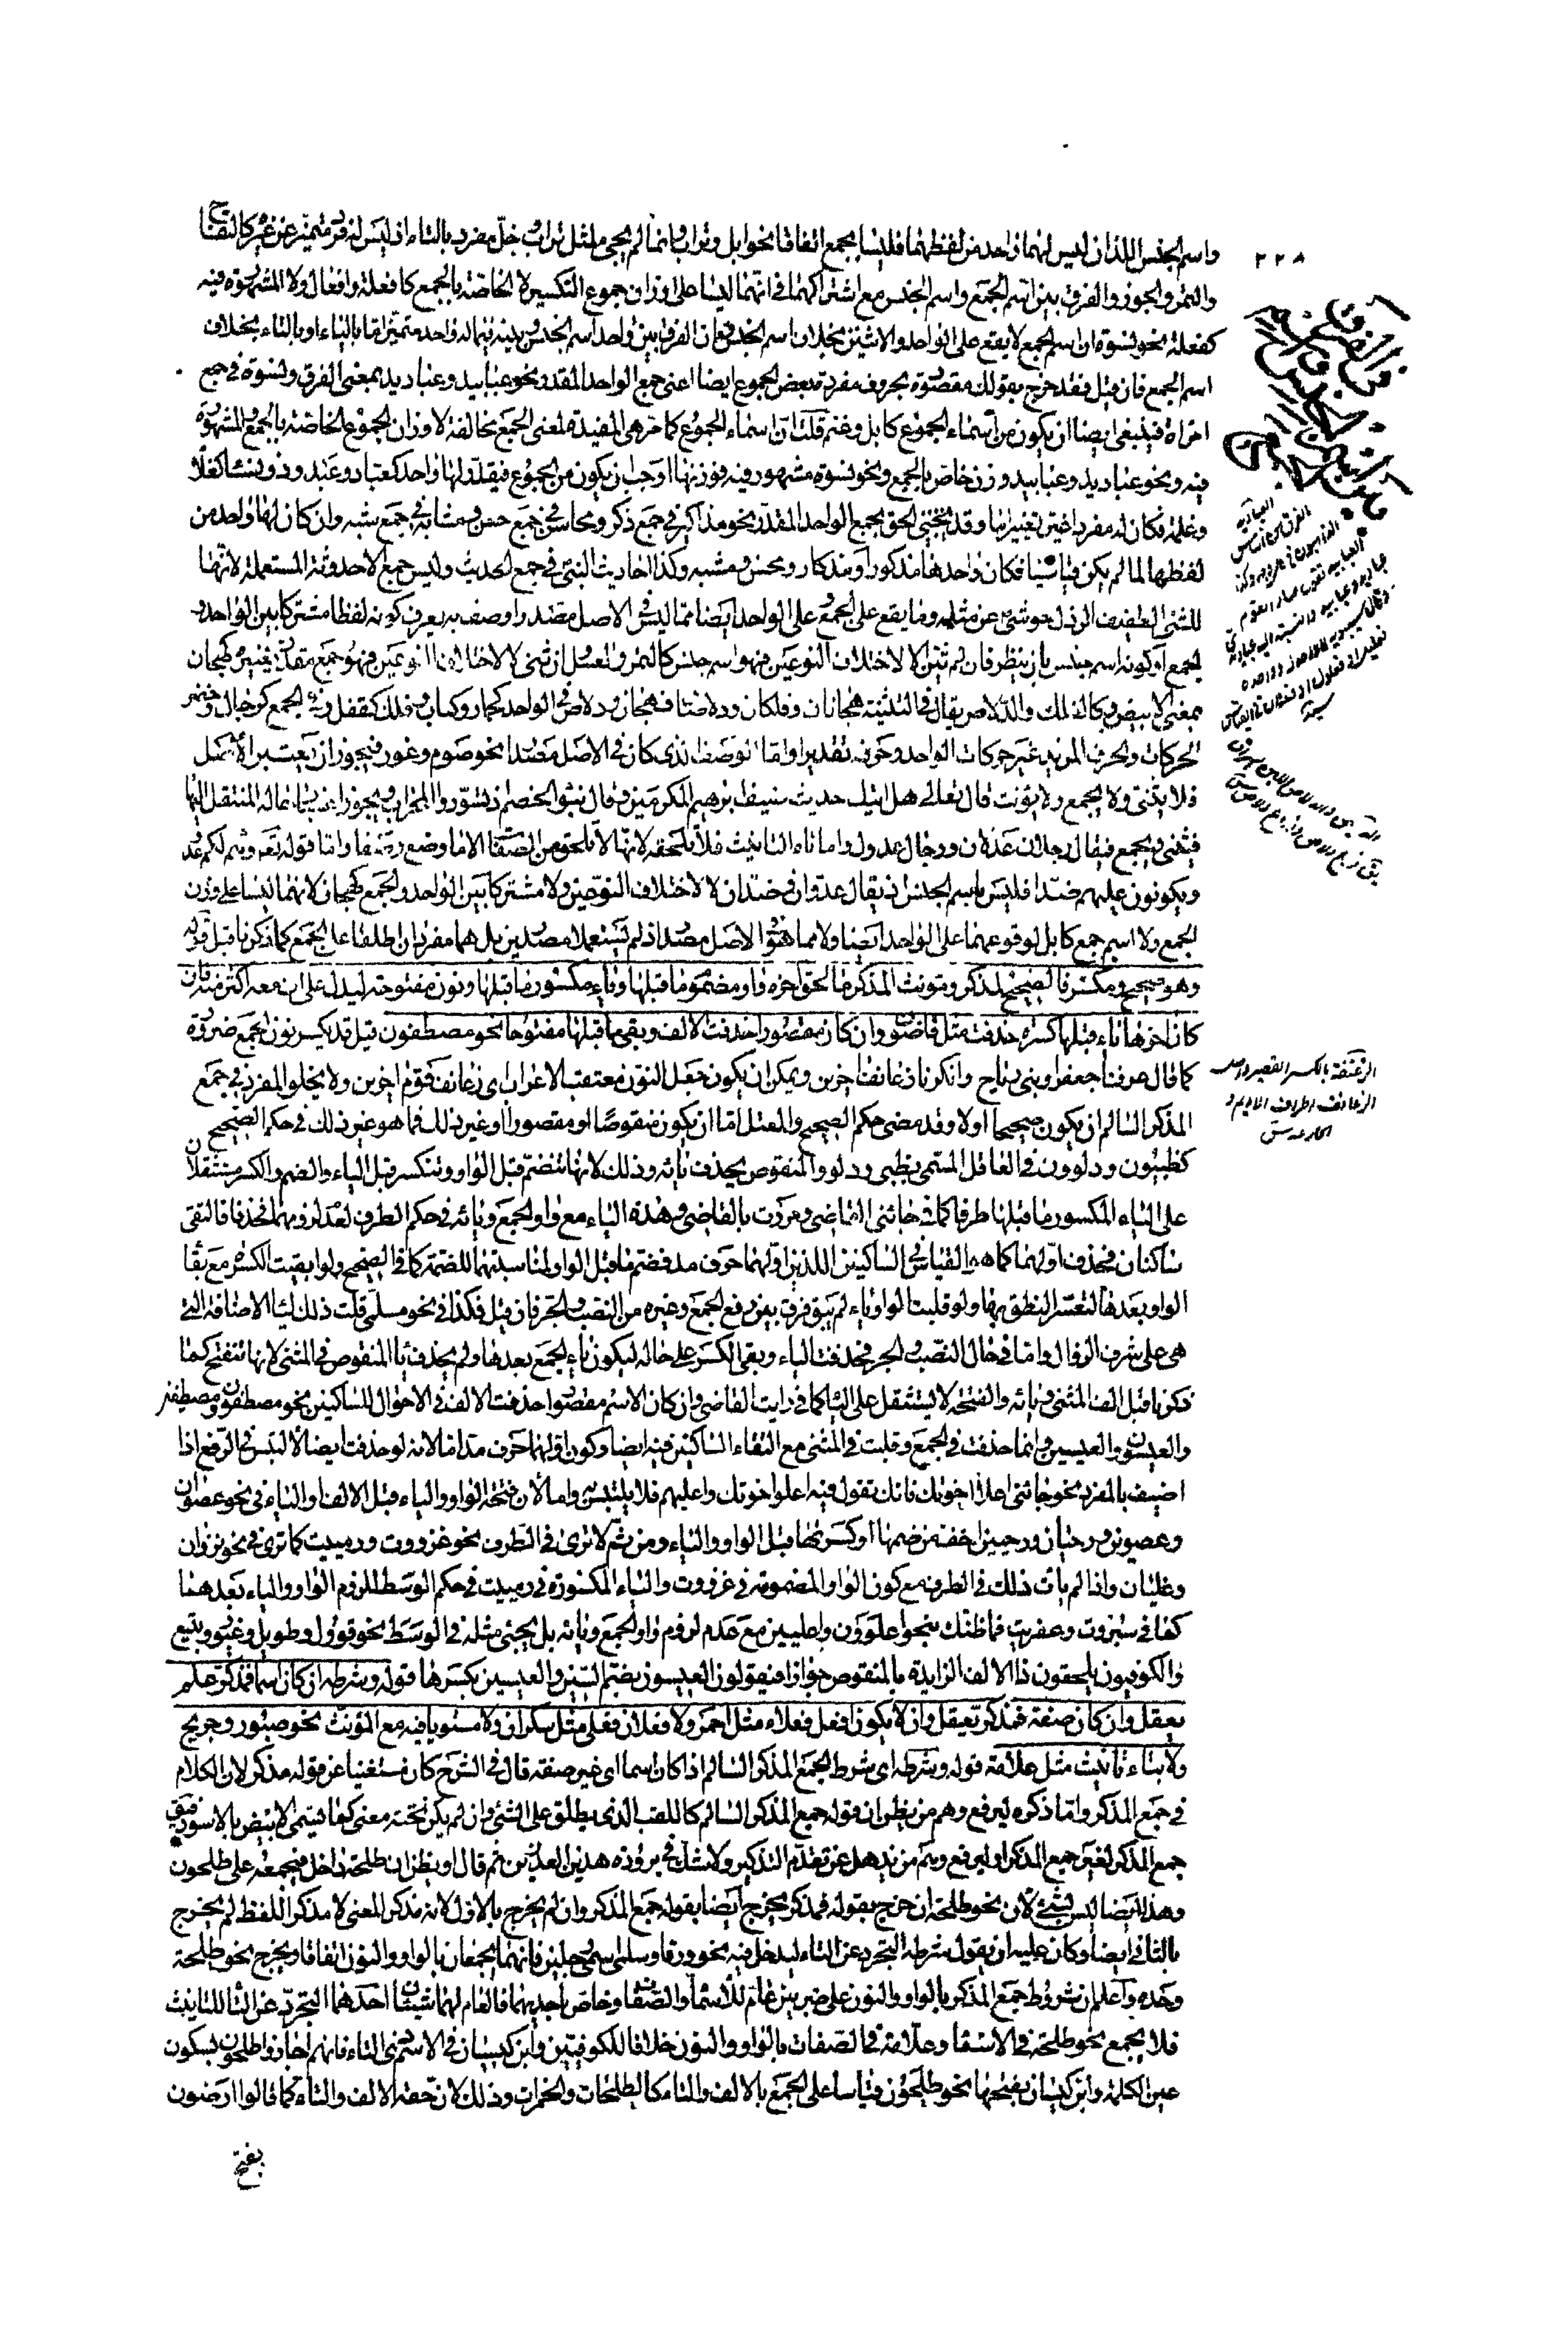 ٢٢٨
واسم الجنس اللذان ليس لهما واحد من لفظهما فليسا بجمع اتفاقا نحو ابل وتراب وانما لم يجئ لمثل تراب وخل مفرد بالتاء اذ ليس له فرد متميز عن غيره كالتفاح
والتمر والجوز والفرق بين اسم الجمع واسم الجنس مع اشتراكهما فى انهما ليسا على اوزان جموع التكسير لا الخاصة بالجمع كافعلة وافعال ولا المشهورة فيه
كفعلة نحو نسوة ان اسم الجمع لا يقع على الواحد والاثنين بخلاف اسم الجنس وان الفرق بين واحد اسم الجنس وبينه فيما له واحد متميز اما بالياء او بالتاء بخلاف
اسم الجمع فان قيل فقد خرج بقولك مقصودة بحروف مفرده بعض الجموع ايضا اعنى جمع الواحد المقدر نحو عبابيد وعباديد بمعنى الفرق ونسوة فى جمع
امراة فينبغى ايضا ان يكون من اسماء الجموع كابل وغنم قلت ان اسماء الجموع كما مر هى المفيدة لمعنى الجمع مخالفة لاوزان الجموع الخاصة بالجمع والمشهورة
فيه ونحو عباديد وعبابيد وزن خاص بالجمع ونحو نسوة مشهور فيه فوزنها اوجب ان يكون من الجموع فيقدر لها واحد كعباد وعبدود ونساء كغلام
وغلمة فكان له مفردا غير تغييرا ما وقد يجئ الحق بجمع الواحد المقدر نحو مذاكير فى جمع ذكر ومحاسن فى جمع حسن ومشابه فى جمع شبه وان كان لها واحد من
لفظها لما لم يكن قياسيا فكان واحدها مذكور او مذكار ومحسن ومشبه وكذا احاديث النبى فى جمع الحديث وليس جمع الاحدوثة المستعملة لانها
للشئ الطفيف الرذل حوشى عن مثله وما يقع على الجمع وعلى الواحد ايضا مما ليس فى الاصل مصدرا وصف به يعرف كونه لفظا مشتركا بين الواحد و
الجمع او كونه اسم جنس بان ينظر فان لم يثن الا لاختلاف النوعين فهو اسم جنس كالتمر والعسل ان ثنى لا لاختلاف النوعين فهو جمع مقدر تغييره كهجان
بمعنى الابيض وكالفلك والدلاص يقال فى التثنية هجانان وفلكان ودلاصان فهجان ودلاص فى الواحد كحمار وكتاب وفلك كقفل وفى الجمع كرجال وخضر
الحركات والحرف المزيد غير حركات الواحد وحرفه تقديرا واما الوصف الذى كان فى الاصل مصدرا نحو صوم وغور فيجوز ان يعتبر الاصل
فلا يثنى ولا يجمع ولا يؤنث قال تعالى هل اتيك حديث ضيف ابرهيم المكرمين وقال نبؤ الخصم اذ تسوروا المحراب ويجوز اعتبار حاله المنتقل اليها
فيثنى ويجمع فيقال رجلان عدلان ورجال عدول واما تاء التانيث فلا تلحقه لانها لا تلحق من الصفات الا ما وضع وصفا واما قوله تعه وهم لكم عدو
ويكونون عليهم ضدا فليس باسم الجنس اذ يقال عدوان وضدان لا لاختلاف النوعين ولا مشتركا بين الواحد والجمع كهجان لانهما ليسا على وزن
الجمع ولا اسم جمع كابل لوقوعهما على الواحد ايضا ولا مما هو فى الاصل مصدر اذ لم يستعملا مصدرين بل هما مفردان اطلقا على الجمع كما ذكرنا قبل قوله
وهو صحيح ومكسر فالصحيح لمذكر ومؤنث المذكر ما لحق اخره واو مضموم ما قبلها او ياء مكسور ما قبلها ونون مفتوحة ليدل على ان معه اكثر منه فان
كان اخره ياء قبلها كسرة حذفت مثل قاضون وان كان مقصورا حذفت الالف وبقى ما قبلها مفتوحا نحو مصطفون قيل قد يكسر نون الجمع ضرورة
كما قال عرفنا جعفرا وبنى رياح وانكرنا زعانف اخرين ويمكن ان يكون جعل النون معتقب الاعراب اى زعانف قوم اخرين ولا يخلو المفرد فى جمع
المذكر السالم ان يكون صحيحا او لا وقد مضى حكم الصحيح والمعتل اما ان يكون منقوصا او مقصورا او غير ذلك فما هو غير ذلك فى حكم الصحيح
كظبيون ودلوون فى العاقل المسمى بظبى ودلو والمنقوص يحذف يائه وذلك لانها تنضم قبل الواو وتنكسر قبل الياء والضم والكسر مستثقلان
على الياء المكسور ما قبلها طرفا كما فى جائنى القاضى ومررت بالقاضى وهذه الياء مع واو الجمع ويائه فى حكم الطرف لعدم لزومهما فحذفا فالتقى
ساكنان فحذف اولهما كما هو القياس فى الساكنين اللذين اولهما حرف مد فضم ما قبل الواو لمناسبتها للضمة كما فى الصحيح ولو ابقيت الكسرة مع بقاء
الواو بعدها لتعسر النطق بها ولو قلبت الواو ياء لم يبق فرق بين رفع الجمع وغيره من النصب والجر فان قيل فكذا فى نحو مسلمى قلت ذلك لياء الاضافة التى
هى على شرف الزوال واما فى حال النصب والجر فحذفت الياء وبقى الكسر على حاله ليكون ياء الجمع بعدها ولم يحذف ياء المنقوص فى المثنى لانها تنفتح كما
ذكرنا قبل الف المثنى ويائه والفتحة لا تستثقل على الياء كما فى رايت القاضى وان كان الاسم مقصورا حذفت الالف فى الاحوال للساكنين نحو مصطفون ومصطفين
والعيسون والعيسين وانما حذفت فى الجمع وقلبت فى المثنى مع التقاء الساكنين فيه ايضا وكون اولهما حرف مد اما لانه لو حذفت ايضا لالتبس فى الرفع اذا
اضيف بالمفرد نحو جائنى اعلا اخوتك فانك تقول فيه اعلوا اخوتك واعليهم فلا يلتبس واما لان فتحة الواو والياء قبل الالف والياء فى نحو عصوان
وعصوين ورحيان ورحيين اخف من ضمها او كسرتها قبل الواو والياء ومن ثم لا ترى فى الطرف نحو غزووت ورمييت كما ترى فى نحو نزوان
وغليان واذا لم يات ذلك فى الطرف مع كون الواو المضمومة فى غزووت والياء المكسورة فى رمييت فى حكم الوسط للزوم الواو والياء بعدهما
كما فى سبروت وعفريت فما ظنك بنحو اعلوون واعليين مع عدم لزوم واو الجمع ويائه بل يجئ مثله فى الوسط نحو قوول وطويل وغيور وبييع
والكوفيون يلحقون ذا الالف الزايدة بالمنقوص جوازا فيقولون العيسون بضم السين والعيسين بكسرها قوله وشرطه ان كان اسما فمذكر علم
يعقل وان كان صفة فمذكر يعقل وان لا يكون افعل فعلاء مثل احمر ولا فعلان فعلى مثل سكران ولا مستويا فيه مع المؤنث نحو صبور وجريح
ولا بتاء تانيث مثل علامة قوله وشرطه اى شرط الجمع المذكر السالم اذا كان اسما اى غير صفة قال فى الشرح كان مستغنيا عن قوله مذكر لان الكلام
فى جمع المذكر وانما ذكره ليرفع وهم من يظن ان قوله جمع المذكر السالم كاللقب الذى يطلق على الشئ وان لم يكن تحته معنى كما يسمى الابيض بالاسود فيق
جمع المذكر لغير جمع المذكر او ليرفع وهم من يذهل عن تقدم التذكير ولا شك فى برودة هذين العذرين ثم قال او يظن ان طلحة داخل فيجمعه على طلحون
وهذا ايضا ليس بشئ لان نحو طلحة ان خرج بقوله فمذكر يخرج ايضا بقوله جمع المذكر وان لم يخرج بالاول لانه مذكر المعنى لا مذكر اللفظ لم يخرج
بالثانى ايضا وكان عليه ان يقول شرطه التجرد عن التاء ليدخل فيه نحو ورقاء وسلمى اسمى رجلين فانهما يجمعان بالواو والنون اتفاقا ويخرج نحو طلحة
وحده واعلم ان شروط جمع المذكر بالواو والنون على ضربين عام للاسماء والصفات وخاص باحدهما فالعام لهما شيئان احدهما التجرد عن التاء للتانيث
فلا يجمع نحو طلحة فى الاسماء وعلامة فى الصفات بالواو والنون خلافا للكوفيين وابن كيسان فى الاسم ذى التاء فانهم اجازوا طلحون بسكون
عين الكلمة وابن كيسان بفتحها نحو طلحون قياسا على الجمع بالالف والتاء كالطلحات والحمزات وذلك لان حقه الالف والتاء كما قالوا ارضون
بفتح
الزعنفة بالكسر القصير واصل
الزعانف اطراف الاديم و
اكارعه